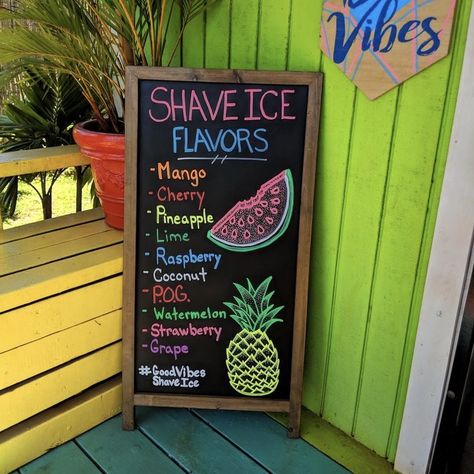 Vibes
SHAVE ICE
FLAVORS
- Mango
- Cherry
- Pineapple
- Lime
- Raspberry
- Coconut
- P.O.G.
- Watermelon
- Strawberry
- Grape
#GoodVibes
Shave Ice